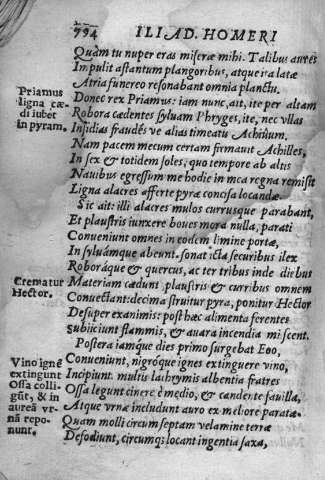 794 ILIAD. HOMERI
Quàm tu nuper eras miseræ mihi. Talibus aures
Impulit astantum plangoribus, atque ira latæ
Atria funereo resonabant omnia planctu.
Priamus
ligna cæ-
di iubet
in pyram.
Donec rex Priamus: iam nunc, ait, ite per altam
Robora cædentes syluam Phryges, ite, nec vllas
Insidias fraudés ve alias timeatis Achiuûm.
Nam pacem mecum certam firmauit Achilles,
In sex & totidem soles, quo tempore ab altis
Nauibus egressum me hodie in mea regna remisit
Ligna alacres afferte pyræ concisa locandæ.
Sic ait: illi alacres mulos currusque parabant,
Et plaustris iunxere boues mora nulla, parati
Conueniunt omnes in eodem limine portæ,
In syluámque abeunt. sonat icta securibus ilex
Roboráque & quercus, ac ter tribus inde diebus
Crematur
Hector.
Materiam cædunt plaustris & curribus omnem
Conuectant: decima struitur pyra, ponitur Hector
Desuper exanimis: post hæc alimenta ferentes
Subiiciunt flammis, & auara incendia miscent.
Postera iamque dies primo surgebat Eoo,
Vino igné
extingunt
Ossa colli-
gūt, & in
aureā vr-
nā repo-
nunt.
Conueniunt, nigróque ignes extinguere vino,
Incipiunt. multis lachrymis albentia fratres
Ossa legunt cinere è medio, & candente fauilla,
Atque vrnæ includunt auro ex meliore paratæ.
Quam molli circum septam velamine terræ
Defodiunt, circumq; locant ingentia saxa,